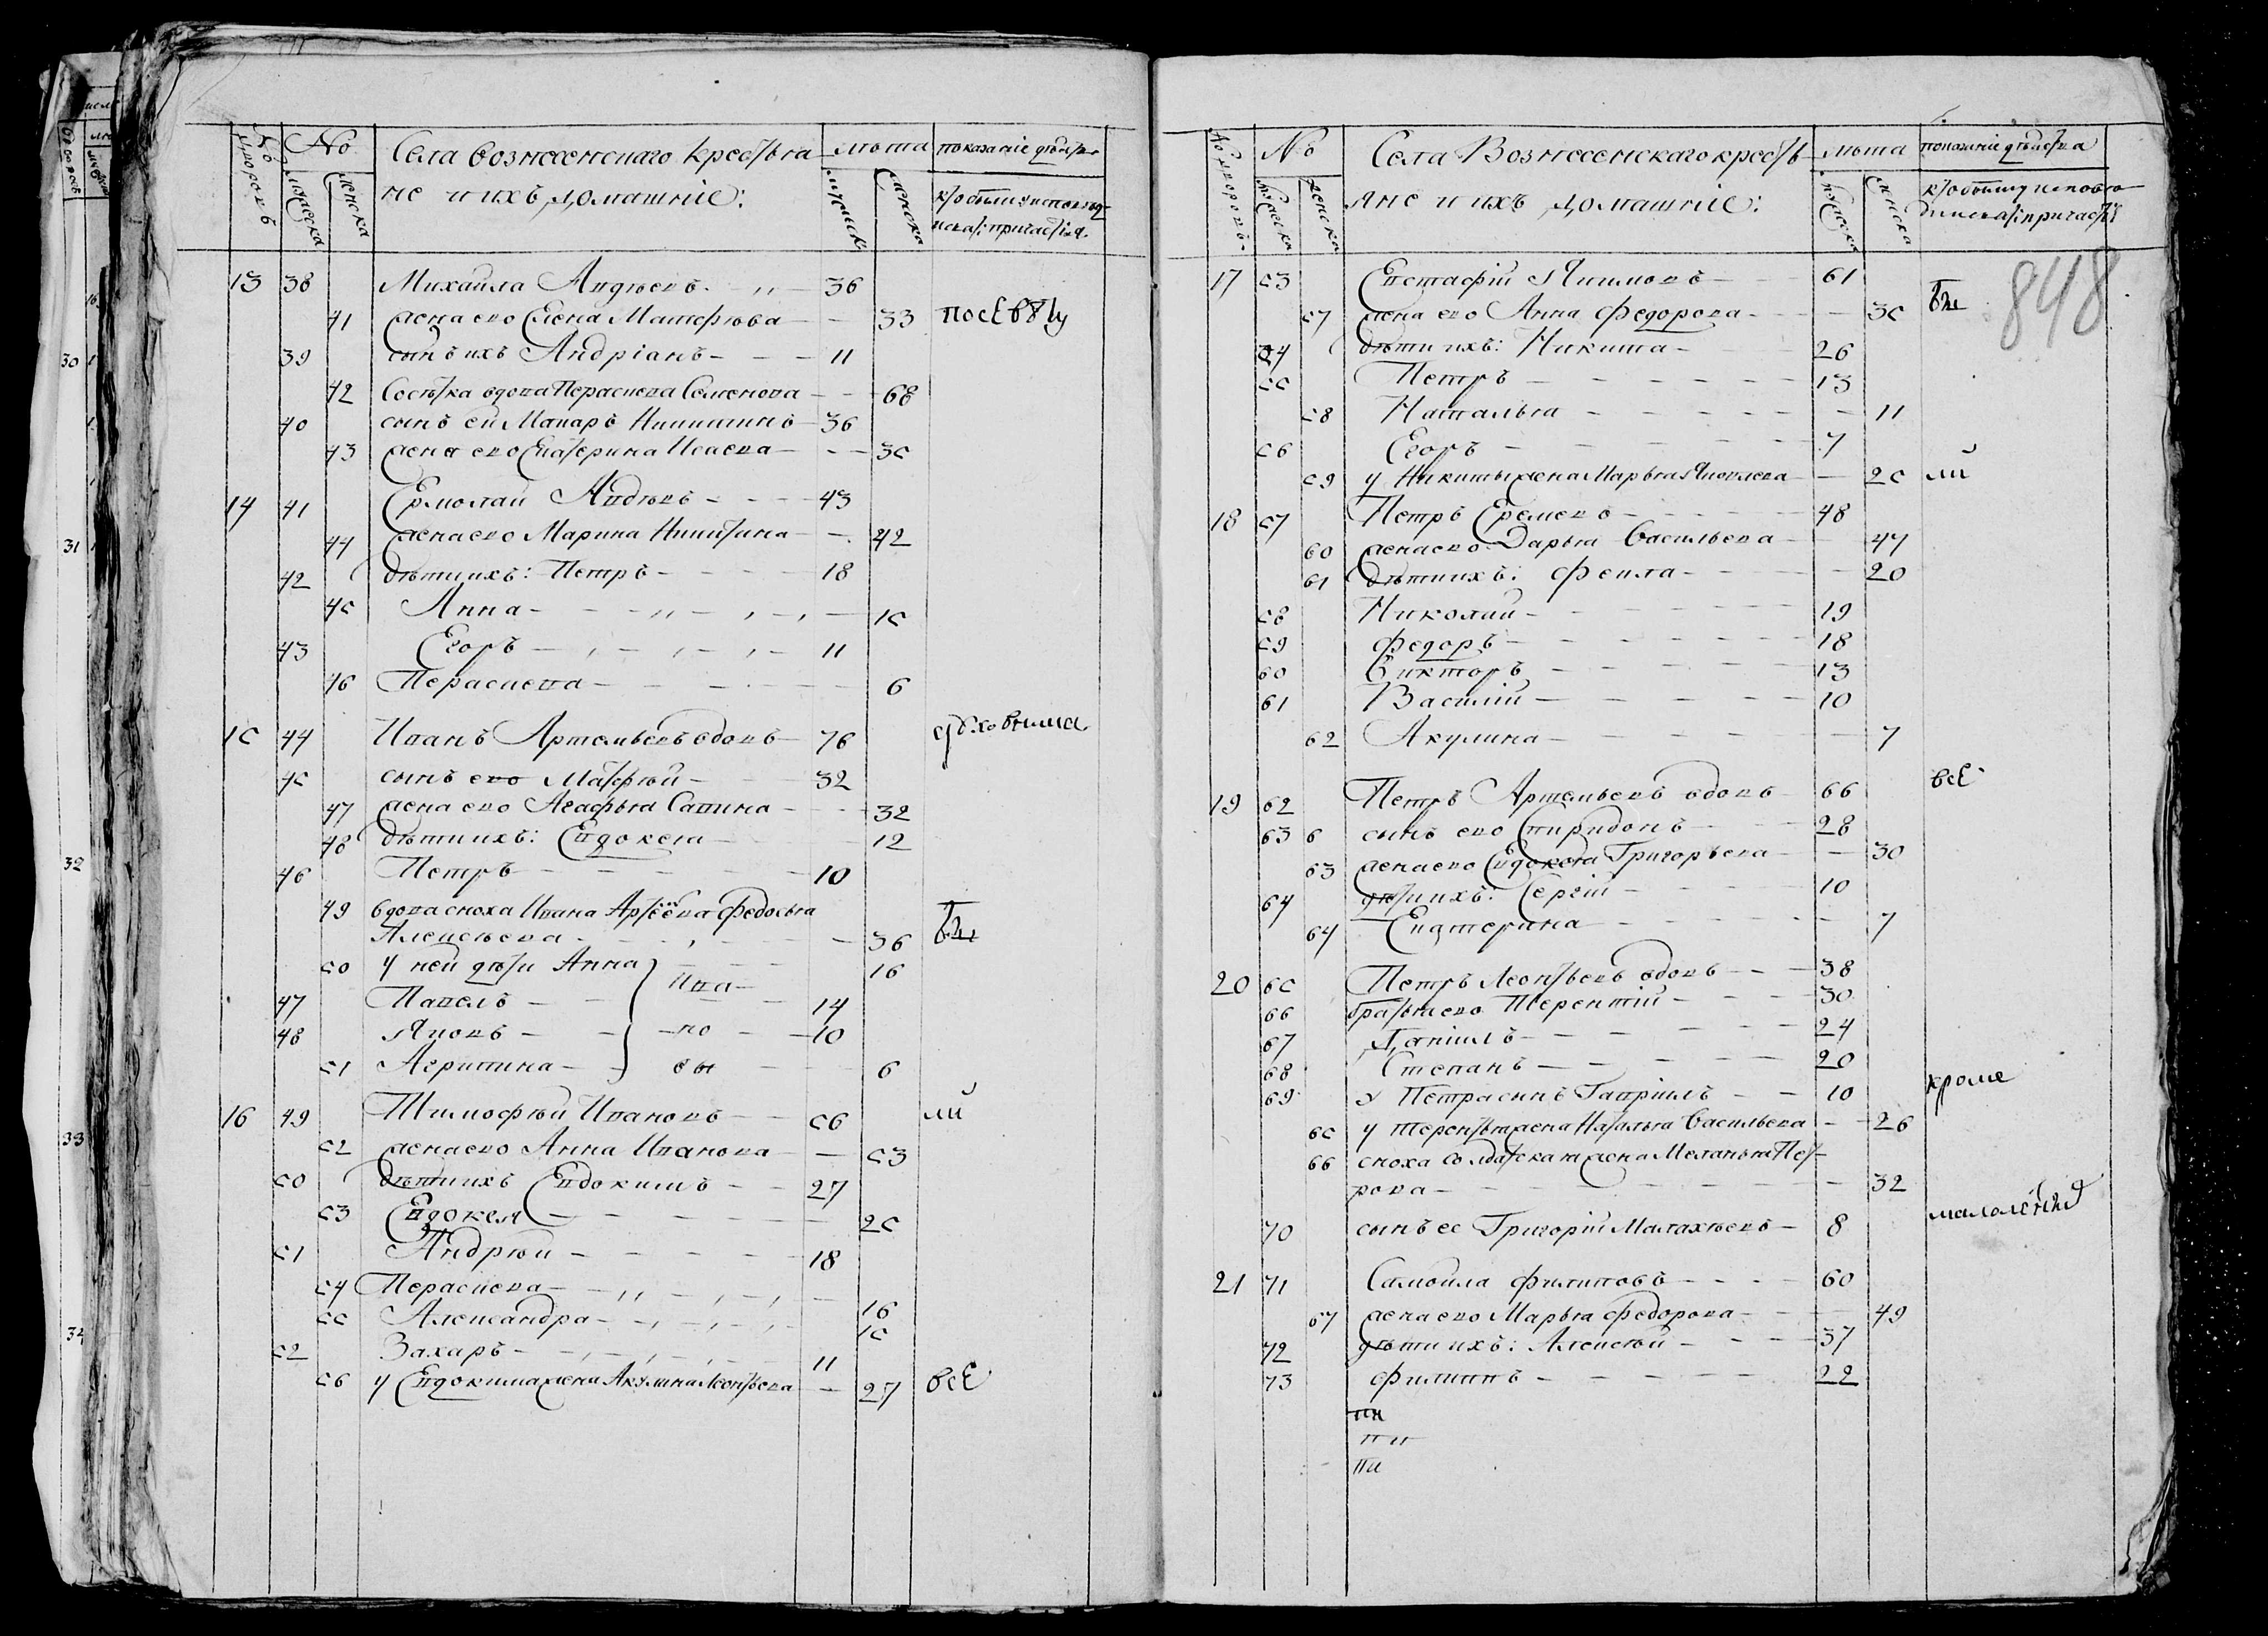 № дворовъ № мужеска женска Села вознесенскаго крестья- лѣта мужеск женска показание действа
не и ихъ домашніе: кто были у исповеди и св: причастія
13 38 Михайла Авдѣевъ 36
41 жена ево Елена Матфѣева 33 посеву
39 сынъ ихъ Андріанъ 11
42 Сосѣтка вдова Пераскева Семенова 68
40 сынъ ей Макаръ Никитинъ 36
43 жена ево Екатерина Исаева 35
14 41 Ермолай Авдѣевъ 43
44 жена ево Марина Никитина 42
42 дѣти ихъ: Петръ 18
45 Анна 15
43 Егоръ 11
46 Пераскева 6
15 44 Иванъ Артемьевъ вдовъ 76 духовнима
45 сынъ ево Матфѣй 32
47 жена ево Агафья Савина 32
48 дѣти ихъ: Евдокея 12
46 Петръ 10
49 вдова сноха Ивана Артеева Федосья
Алексѣева 36 бы
50 у ней дѣти Анна 16
Ива-
47 Павелъ 14
48 Яковъ но 10
51 Агрипина вы 6
16 49 Тимофѣй Ивановъ 56 ли
52 жена ево Анна Иванова 53
50 дѣти ихъ Евдокимъ 27
53 Евдокея 25
51 Андрѣй 18
54 Пераскева 16
55 Александра 15
52 Захаръ 11
56 у Евдокима жена Акулина Леонтьева 27 все
№ дворовъ № мужеска женска Села Вознесенскаго кресть- лѣта мужеска женска показание действа
яне и ихъ домашніе: кто были у исповедиисва: причастія
848
17 53 Евстафій Якимовъ 61
57 жена ево Анна Федорова 35 бы
54 дѣти ихъ: Никита 26
55 Петръ 13
58 Наталья 11
56 Егоръ 7
59 у Никиты жена Марья Яковлева 25 ли
18 57 Петръ Еремеевъ 48
60 жена ево Дарья Васильева 47
61 дѣти ихъ: Фекла 20
58 Николай 19
59 Федоръ 18
60 Викторъ 13
61 Василій 10
62 Акулина 7
19 62 Петръ Артемьевъ вдовъ 66 все
63 6 сынъ ево Спиридонъ 28
63 жена ево Евдокея Григорьева 30
64 дѣти ихъ: Сергій 10
64 Екатерина 7
20 65 Петръ Леонтьевъ вдовъ 38
66 братья ево Терентій 30
67 Даніилъ 24
68 Степанъ 20
69 у Петра сынъ Гавріилъ 10 кроме
65 у Терентья жена Наталья Васильева 26
66 сноха солдатская жена Меланья Пет-
рова 32
70 сынъ ее Григорій Малахѣевъ 8 малолетныхъ
21 71 Самойла Филиповъ 60
67 жена ево Марья Федорова 49
72 дѣти ихъ: Алексѣй 37
73 Филиппъ 22
пи
пи
пи